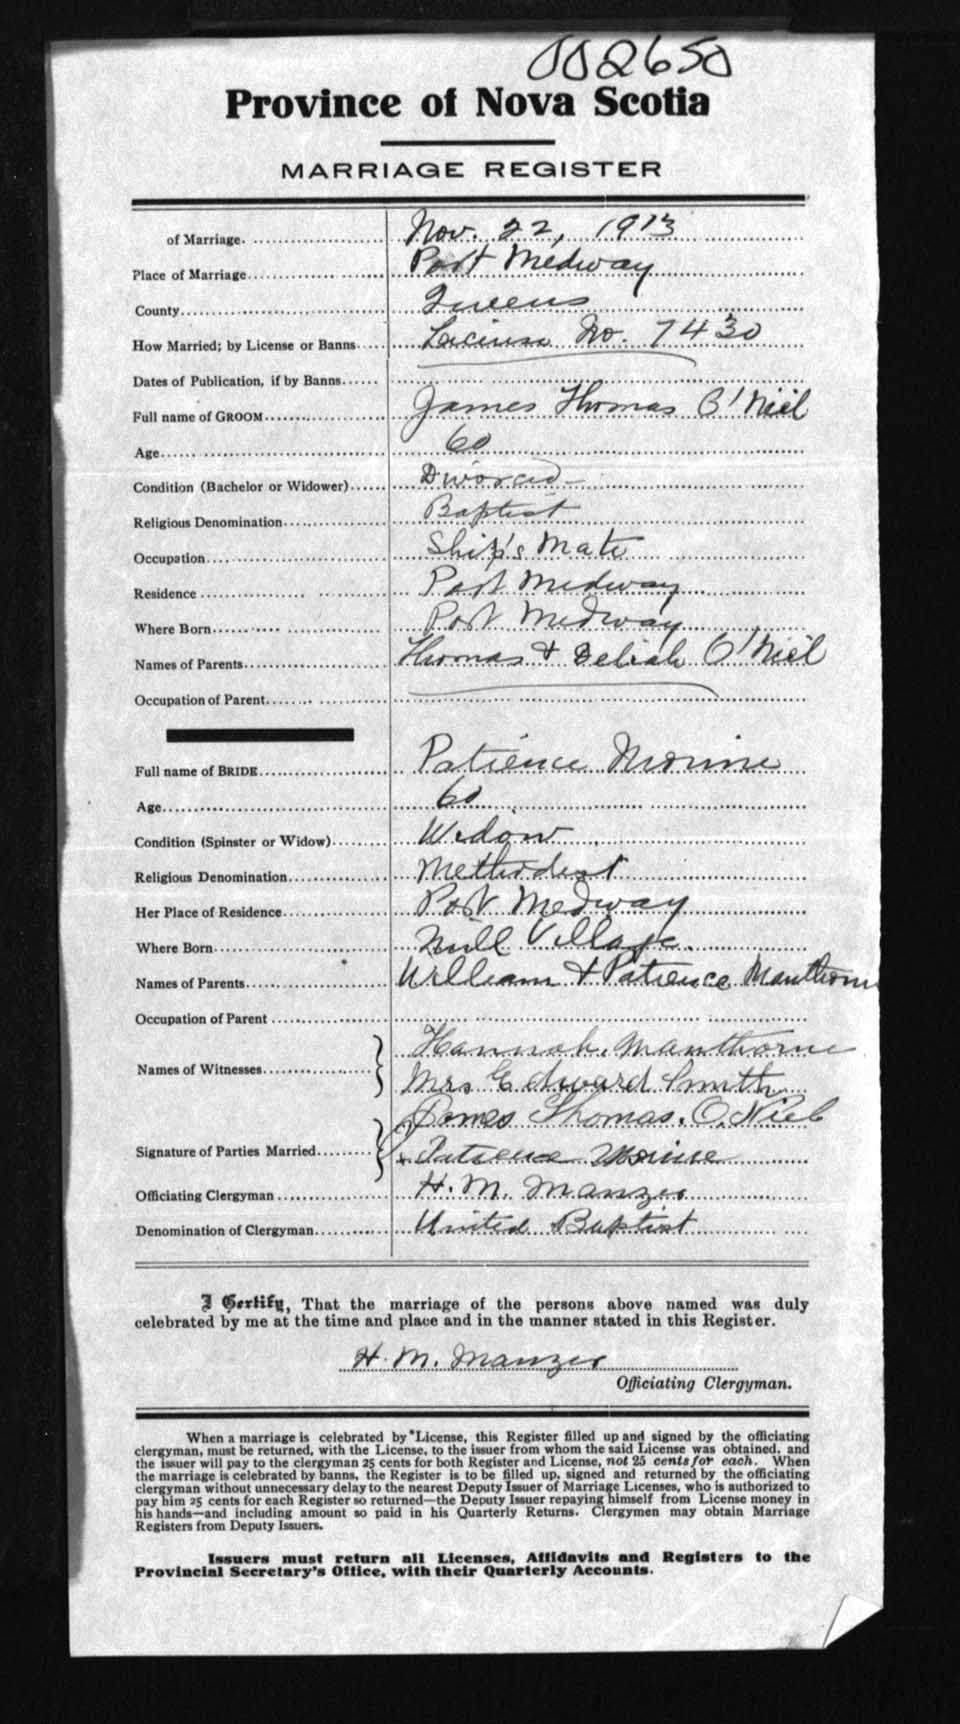 002650
Province of Nova Scotia
MARRIAGE REGISTER
of Marriage. Nov. 22, 1913
Place of Marriage Port Medway
County Queens
How Married; by License or Banns License No. 7430
Dates of Publication, if by Banns
Full name of GROOM James Thomas O'Niel
Age 60
Condition (Bachelor or Widower) Divorced
Religious Denomination Baptist
Occupation Ship's Mate
Residence Port Medway
Where Born Port Medway
Names of Parents Thomas & Deliah O'Niel
Occupation of Parent
Full name of BRIDE Patience Morine
Age 60
Condition (Spinster or Widow) Widow
Religious Denomination Methodist
Her Place of Residence Port Medway
Where Born Mill Village.
Names of Parents William & Patience Manthorne
Occupation of Parent
Names of Witnesses Hannah Manthorne
Mrs Edward Smith
Signature of Parties Married James Thomas. O. Niel
Patience Morine
Officiating Clergyman H. M. Manzer
Denomination of Clergyman United Baptist
I Certify, That the marriage of the persons above named was duly
celebrated by me at the time and place and in the manner stated in this Register.
H. M. Manzer
Officiating Clergyman.
When a marriage is celebrated by License, this Register filled up and signed by the officiating
clergyman, must be returned, with the License, to the issuer from whom the said License was obtained, and
the issuer will pay to the clergyman 25 cents for both Register and License, not 25 cents for each. When
the marriage is celebrated by banns, the Register is to be filled up, signed and returned by the officiating
clergyman without unnecessary delay to the nearest Deputy Issuer of Marriage Licenses, who is authorized to
pay him 25 cents for each Register so returned—the Deputy Issuer repaying himself from License money in
his hands—and including amount so paid in his Quarterly Returns. Clergymen may obtain Marriage
Registers from Deputy Issuers.
Issuers must return all Licenses, Affidavits and Registers to the
Provincial Secretary's Office, with their Quarterly Accounts.